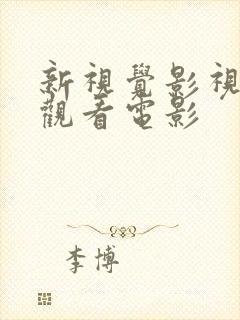 新視覺影視
觀看電影
李博